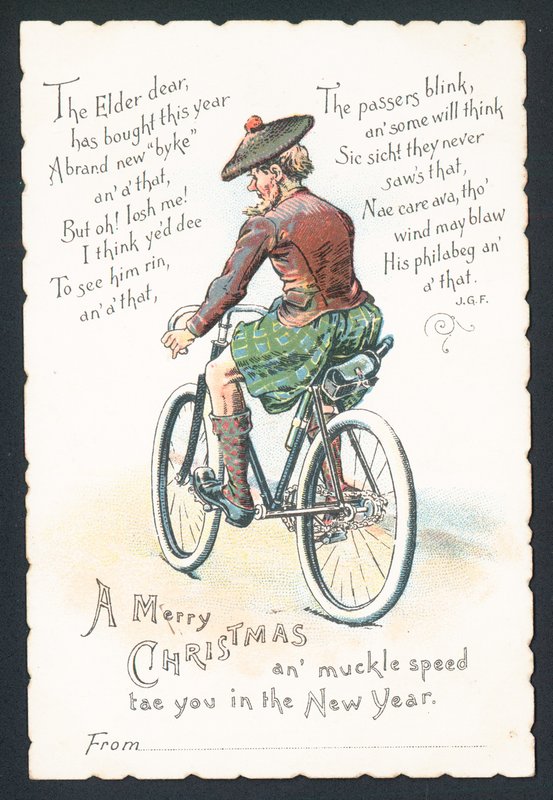 The Elder dear,
has bought this year
A brand new "byke"
an' a' that,
But oh! losh me!
I think ye'd dee
To see him rin,
an' a' that,
The passers blink,
an' some will think
Sic sicht they never
saw's that,
Nae care ava, tho'
wind may blaw
His philabeg an'
a' that.
J.G.F.
A Merry
CHRISTMAS
an' muckle speed
tae you in the New Year.
From